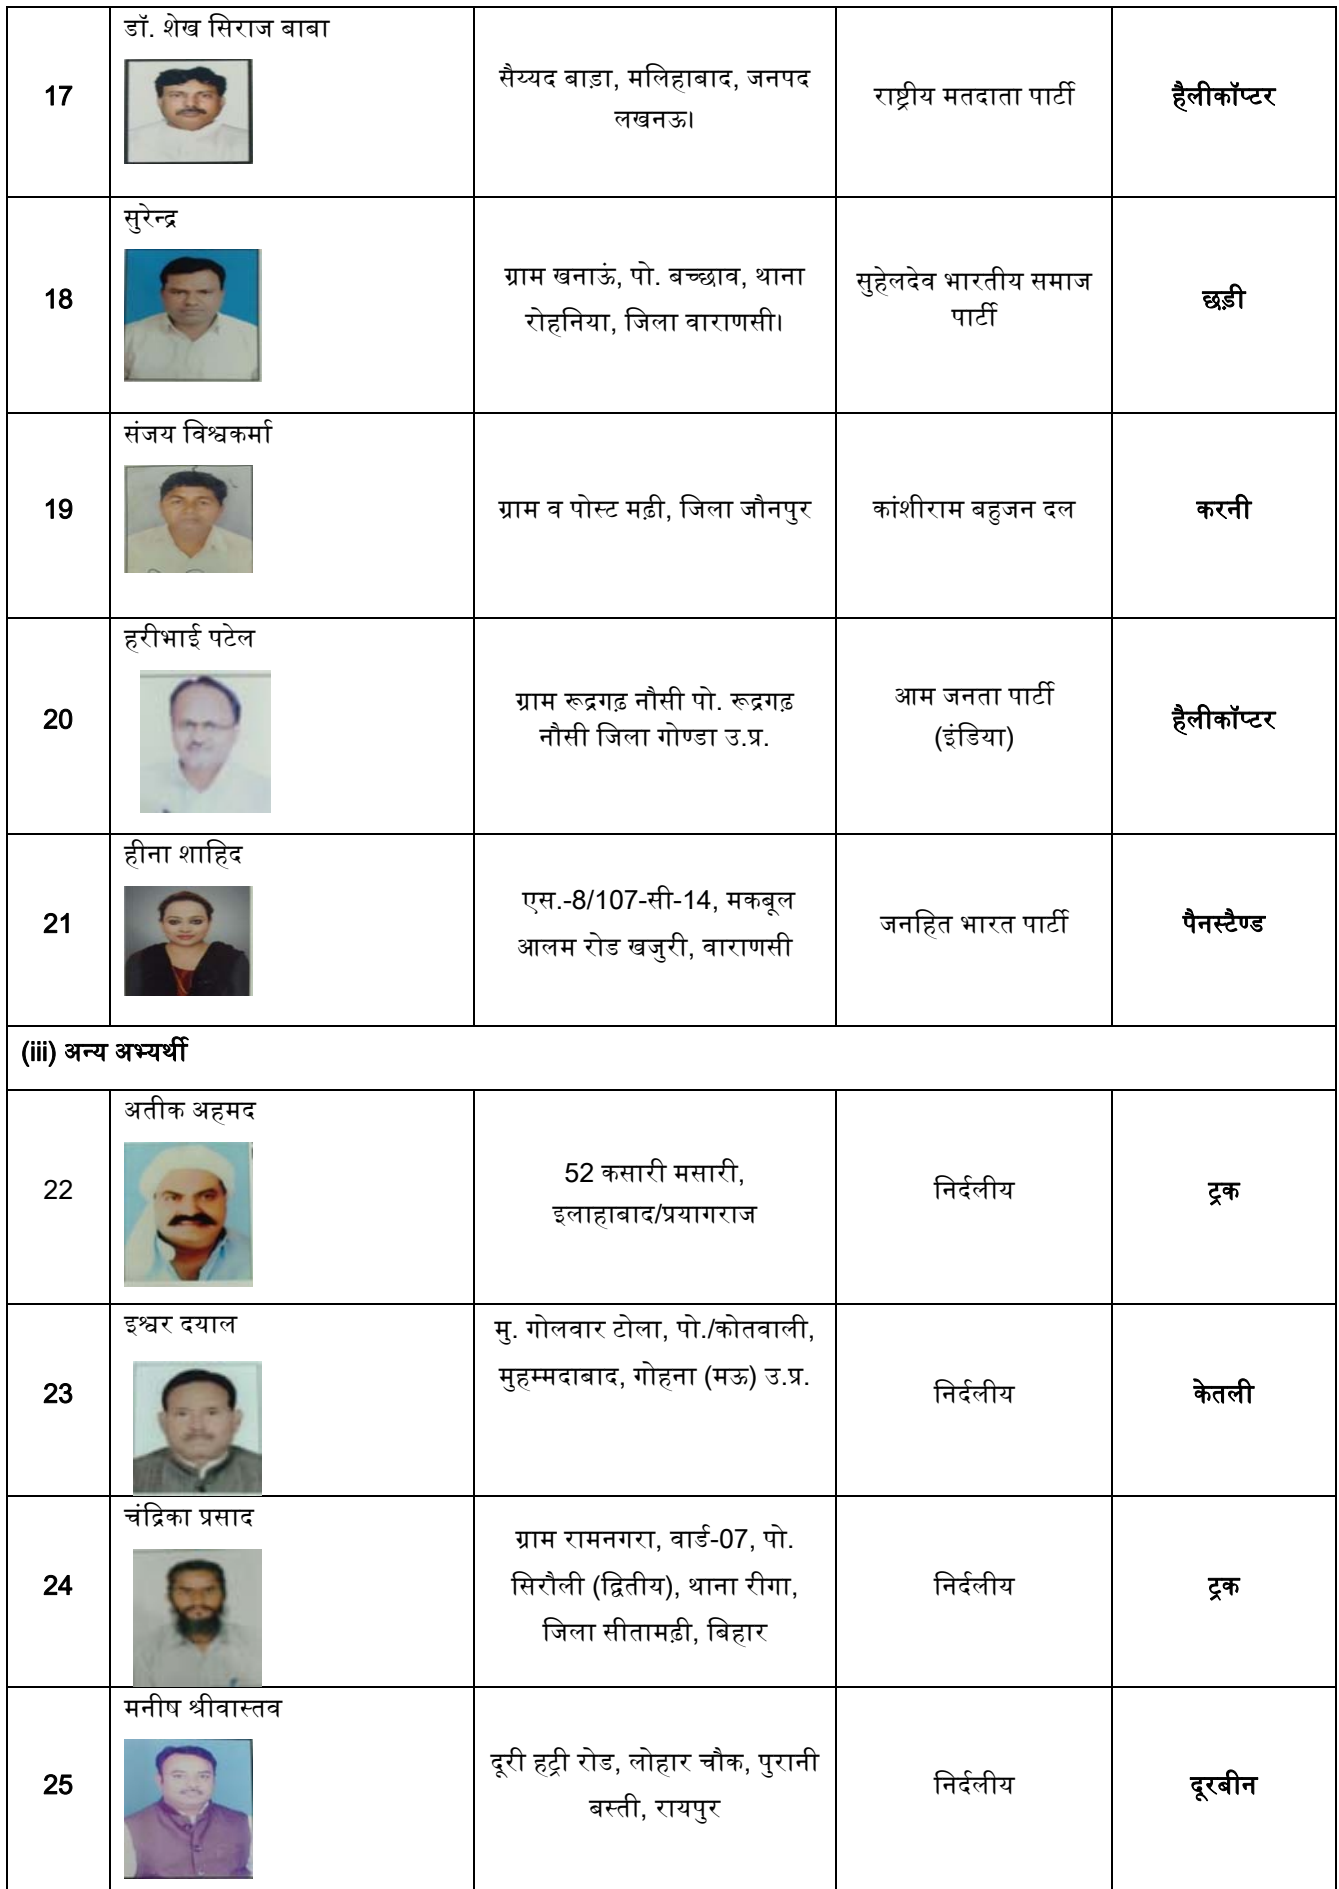 17
डॉ. शेख सिराज बाबा
सैय्यद बाड़ा, मलिहाबाद, जनपद
लखनऊ।
राष्ट्रीय मतदाता पार्टी
हैलीकॉप्टर
18
सुरेन्द्र
ग्राम खनाऊं, पो. बच्छाव, थाना
रोहनिया, जिला वाराणसी।
सुहेलदेव भारतीय समाज
पार्टी
छड़ी
19
संजय विश्वकर्मा
ग्राम व पोस्ट मढ़ी, जिला जौनपुर
कांशीराम बहुजन दल
करनी
20
हरीभाई पटेल
ग्राम रूद्रगढ़ नौसी पो. रूद्रगढ़
नौसी जिला गोण्डा उ.प्र.
आम जनता पार्टी
(इंडिया)
हैलीकॉप्टर
21
हीना शाहिद
एस.-8/107-सी-14, मकबूल
आलम रोड खजुरी, वाराणसी
जनहित भारत पार्टी
पैनस्टैण्ड
(iii) अन्य अभ्यर्थी
22
अतीक अहमद
52 कसारी मसारी,
इलाहाबाद/प्रयागराज
निर्दलीय
ट्रक
23
इश्वर दयाल
मु. गोलवार टोला, पो./कोतवाली,
मुहम्मदाबाद, गोहना (मऊ) उ.प्र.
निर्दलीय
केतली
24
चंद्रिका प्रसाद
ग्राम रामनगरा, वार्ड-07, पो.
सिरौली (द्वितीय), थाना रीगा,
जिला सीतामढ़ी, बिहार
निर्दलीय
ट्रक
25
मनीष श्रीवास्तव
दूरी हट्री रोड, लोहार चौक, पुरानी
बस्ती, रायपुर
निर्दलीय
दूरबीन